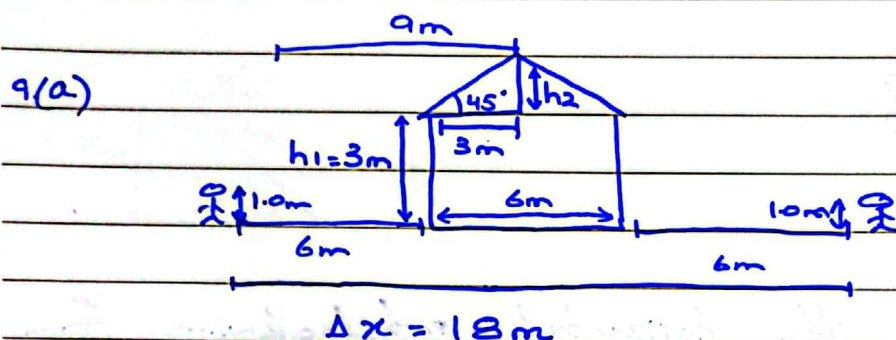 9m
9(a)
45°
h2
3m
h1=3m
1.0m
6m
1.0m
6m
6m
Δx = 18m